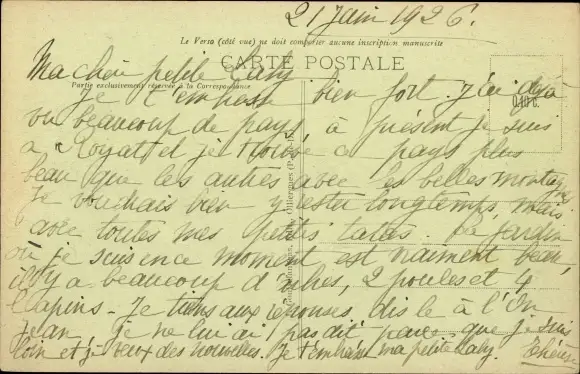 21 Juin 1926.
Le Verso (côté vue) ne doit comporter aucune inscription manuscrite
CARTE POSTALE
Partie exclusivement réservée à la Correspondance
Ma chère petite Laby
Je t'embrasse bien fort. J'ai déjà
vu beaucoup de pays à présent je suis
a Royat et je trouve ce pays plus
beau que les autres avec les belles montagnes
Je voudrais bien y rester longtemps, mais
avec toutes mes petites tatas. Le jardin
où je suis en ce moment est vraiment beau,
il y a beaucoup d'arbres, 2 poules et 4
lapins. Je tiens aux réponses, dis le à l'On
Jean je ne lui ai pas dit parce que je suis
loin et j'veux des nouvelles. Je t'embrasse ma petite Laby. Thérèse